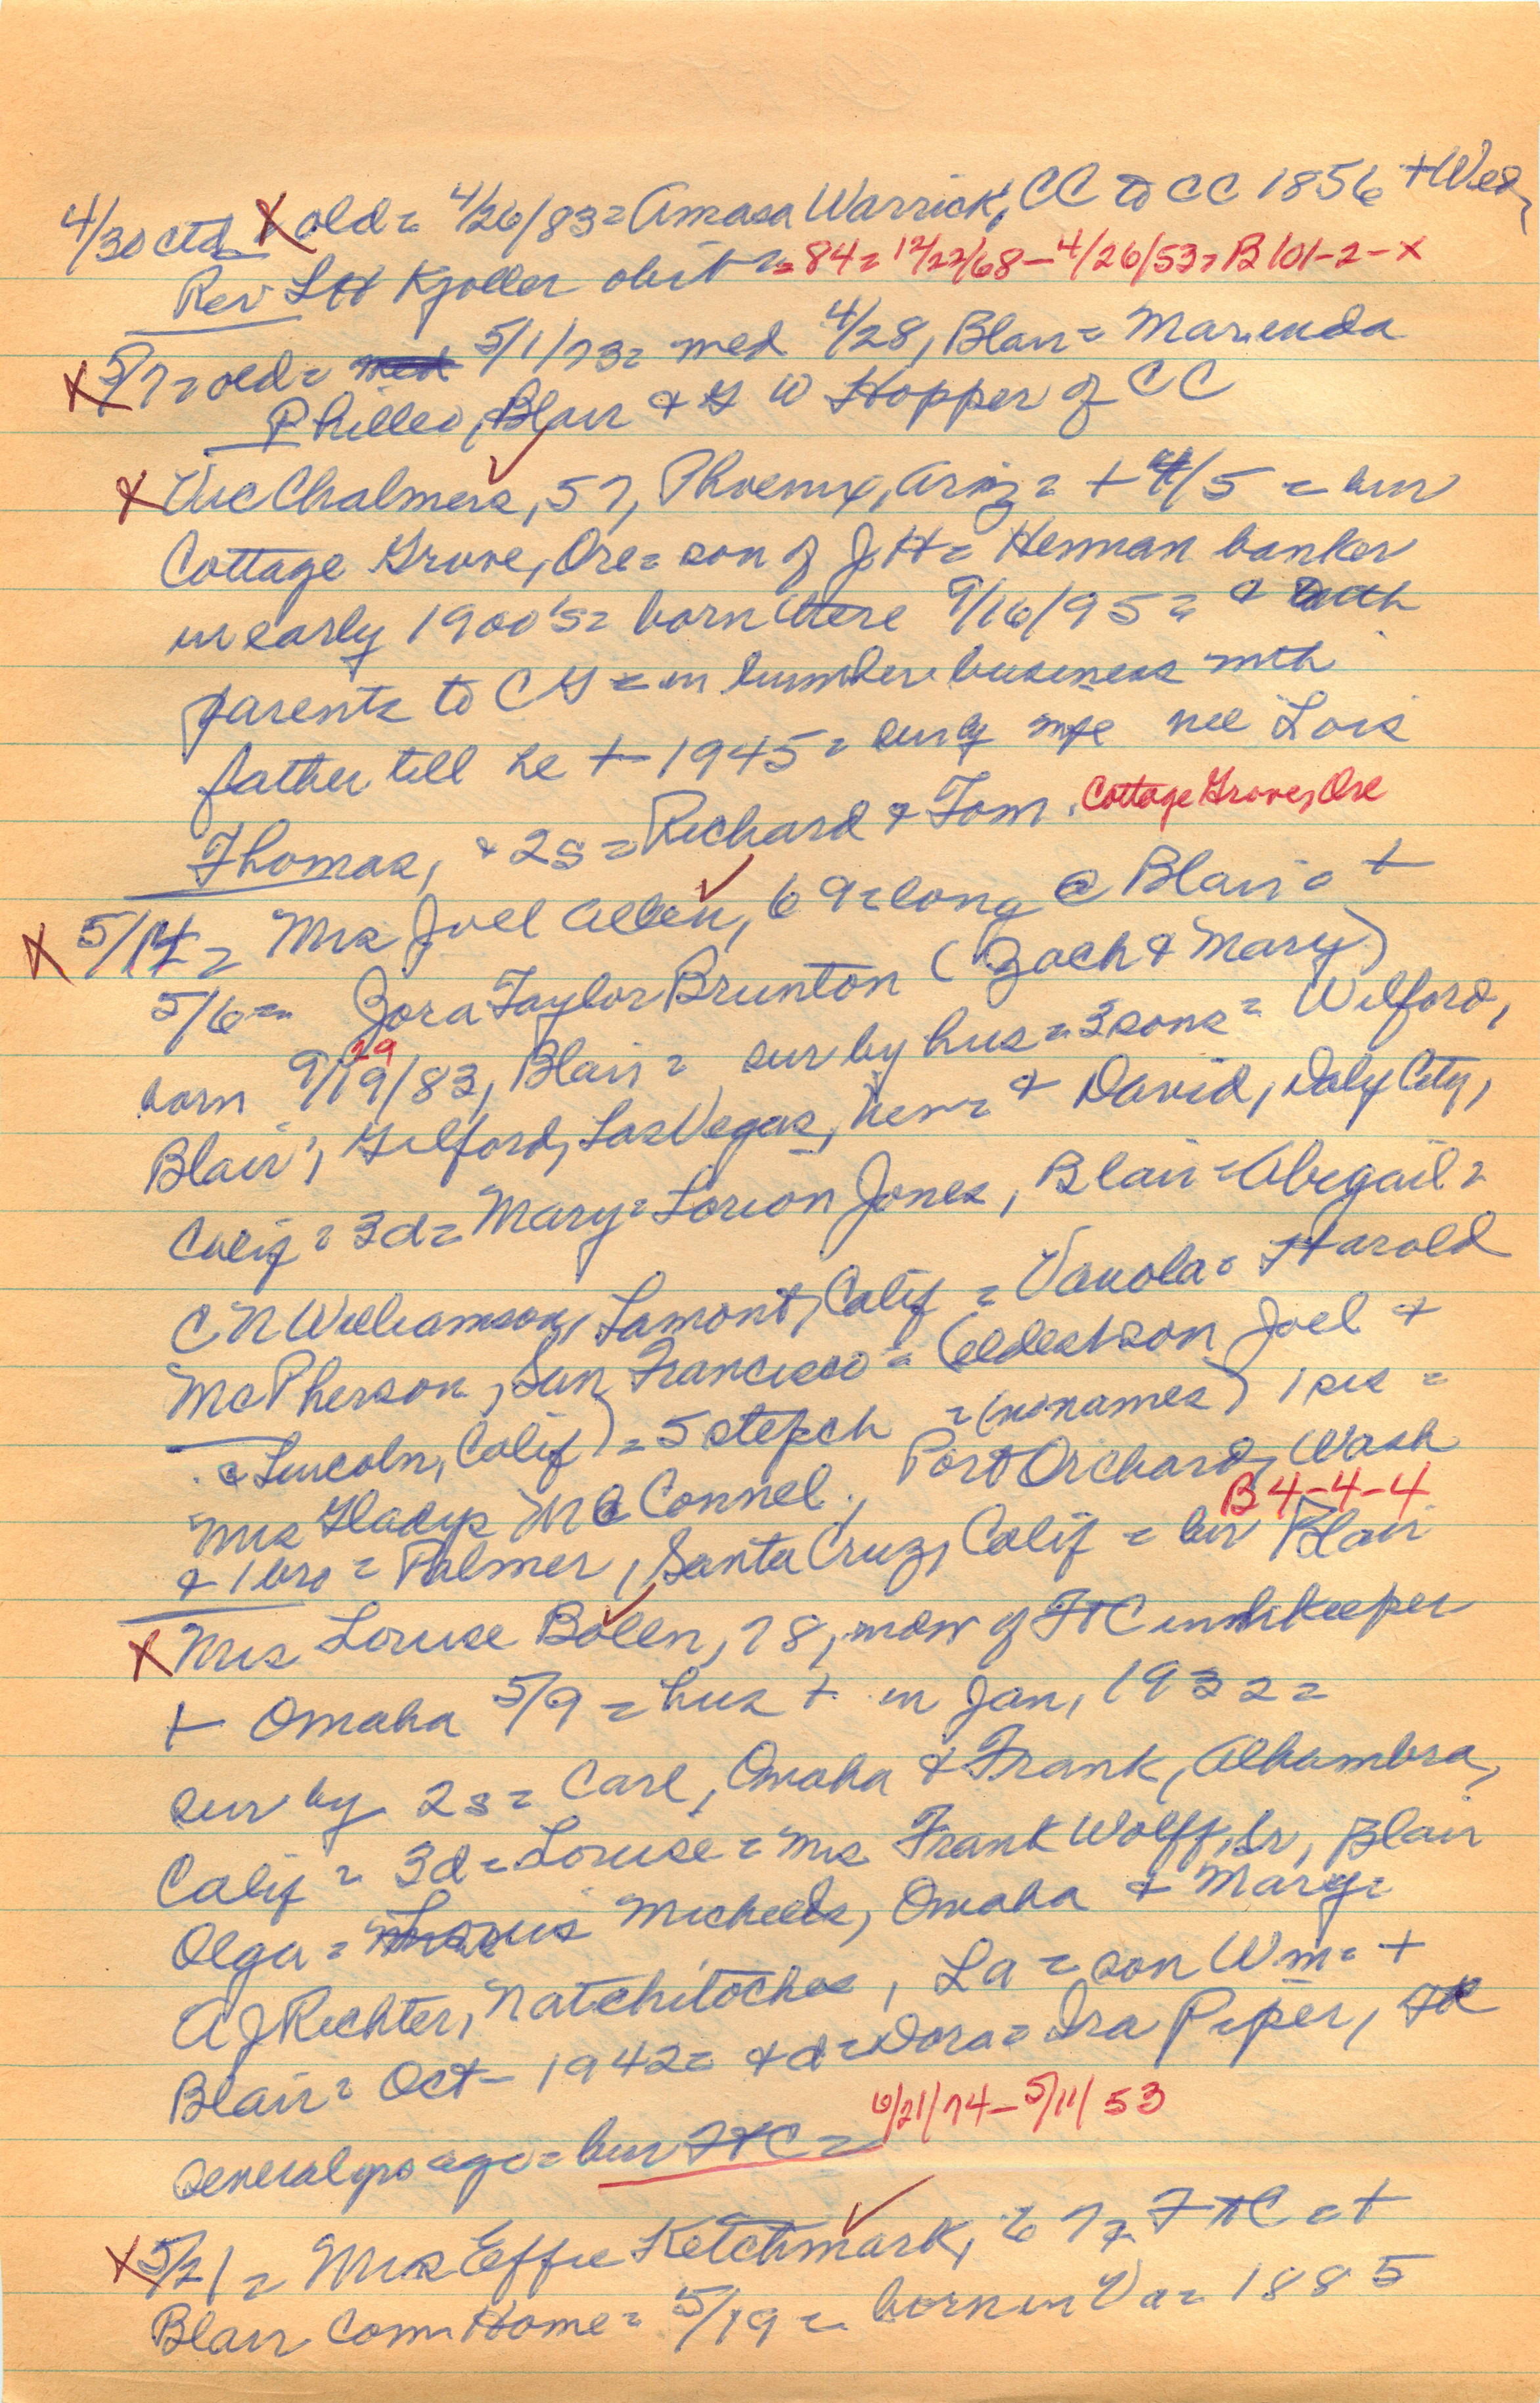 4/30 ctd X old = 4/26/83 = Amasa Warrick, CC to CC 1856 + Wed,
Rev LH Kjoller obit = = 84 = 12/22/68 - 4/26/53 = B 101-2-X
X 5/7 = old = 5/1/73 = med 4/28, Blair = Marenda
Philleo, Blair & G W Hopper of CC
X Vic Chalmers, 57, Phoenix, Ariz = + 4/5 = bur
Cottage Grove, Ore = son of J H = Herman banker
in early 1900's = born there 9/16/95 = & with
parents to CG = in lumber business with
father till he + 1945 = surv by wife nee Lois
Thomas, & 2s = Richard & Tom. Cottage Grove, Ore
X 5/14 = Mrs Joel Allen, 69 = long @ Blair = +
5/6 = Zora Taylor Brunton (Zach & Mary)
29
born 9/19/83, Blair = sur by hus = 3 sons = Wilford,
Blair; Gilford, Las Vegas, Nev = & David, Daly City,
Calif = 3d = Mary = Lorion Jones, Blair = Abigail =
C N Williamson, Lamont, Calif = Vanola = Harold
McPherson, San Francisco = (eldest son Joel +
@ Lincoln, Calif) = 5 stepch = (no names) 1 sis =
Mrs Gladys McConnel, Port Orchard, Wash
B 4-4-4
& 1 bro = Palmer, Santa Cruz, Calif = bur Blair
X Mrs Louise Bolen, 78, widow of FtC innkeeper
+ Omaha 5/9 = hus + in Jan, 1932 =
sur by 2s = Carl, Omaha & Frank, Alhambra,
Calif = 3d = Louise = Mrs Frank Wolff, Sr, Blair
Olga = Micheels, Omaha & Mary =
A J Richter, Natchitoches, La = son Wm = +
Blair = Oct - 1942 = & d = Dora = Ira Piper, +
several yrs ago = bur FtC = 6/21/74 - 5/11/53
X 5/21 = Mrs Effie Ketchmark, 67 = FtC = +
Blair Com Home = 5/19 = born in Va = 1885